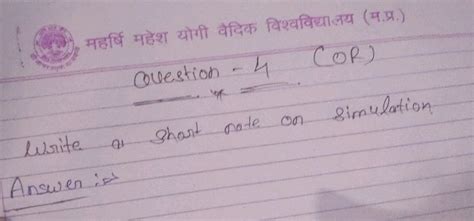 महर्षि महेश योगी वैदिक विश्वविद्यालय (म.प्र.)
Question - 4 (OR)
Write a short note on simulation
Answer :-